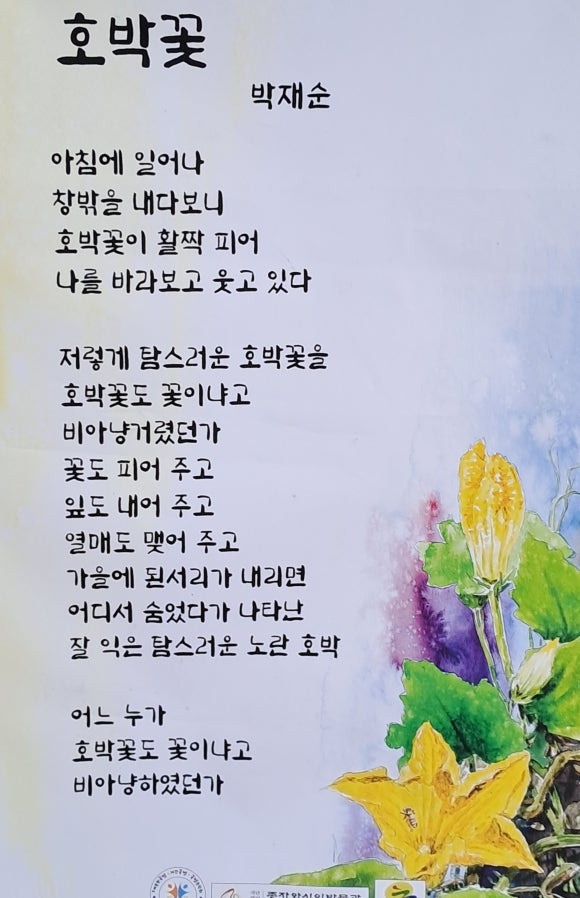 호박꽃
박재순
아침에 일어나
창밖을 내다보니
호박꽃이 활짝 피어
나를 바라보고 웃고 있다
저렇게 탐스러운 호박꽃을
호박꽃도 꽃이냐고
비아냥거렸던가
꽃도 피어 주고
잎도 내어 주고
열매도 맺어 주고
가을에 된서리가 내리면
어디서 숨었다가 나타난
잘 익은 탐스러운 노란 호박
어느 누가
호박꽃도 꽃이냐고
비아냥하였던가